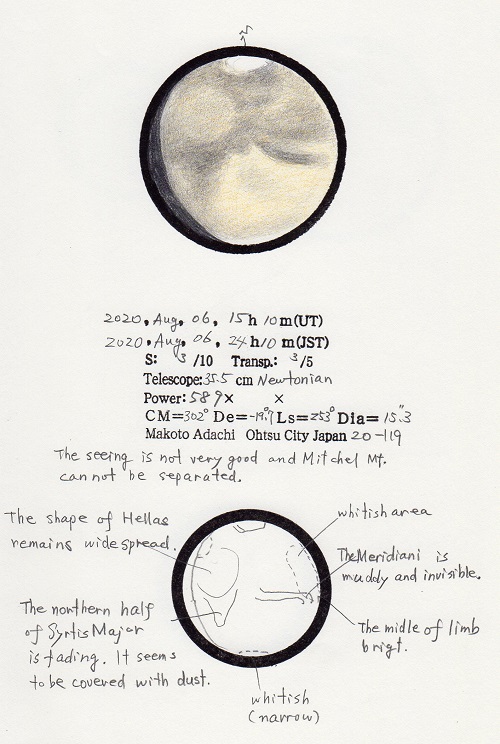 2020, Aug, 06, 15h 10m(UT)
2020, Aug, 06, 24h10m(JST)
S: 3/10 Transp.: 3/5
Telescope:35.5 cm Newtonian
Power: 589× ×
CM=302° De=-19.7° Ls=253° Dia= 15.3"
Makoto Adachi Ohtsu City Japan 20-119
The seeing is not very good and Mitchel Mt.
can not be separated.
The shape of Hellas
remains widespread.
whitish area
The Meridiani is
muddy and invisible.
The northern half
of Syrtis Major
is fading. It seems
to be covered with dust.
The midle of limb
brigt.
whitish
(narrow)